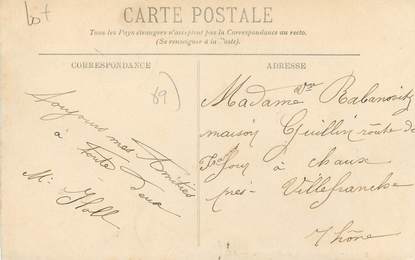 CARTE POSTALE
Tous les Pays étrangers n'acceptent pas la Correspondance au recto.
(Se renseigner à la Poste).
CORRESPONDANCE
ADRESSE
89
Toujours mes Amitiés
à toute Deux
M. Holl
Madame Vve Rabanovitz
maison Guillin route de
à chaux
près Villefranche
Rhône